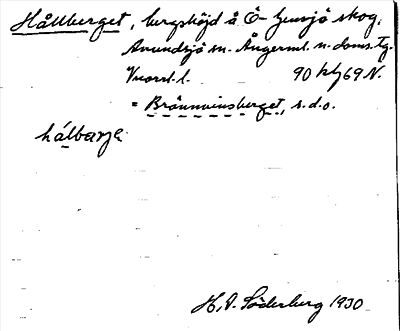 Hållberget, bergshöjd å Ö-Gensjö skog,
Anundsjö sn. Ångerml. n. doms. tg.
Vnorrl. l. 90 Kbf 69 N.
= Brännvinsberget, s.d.o.
hálbærjə
H. V. Söderberg 1930